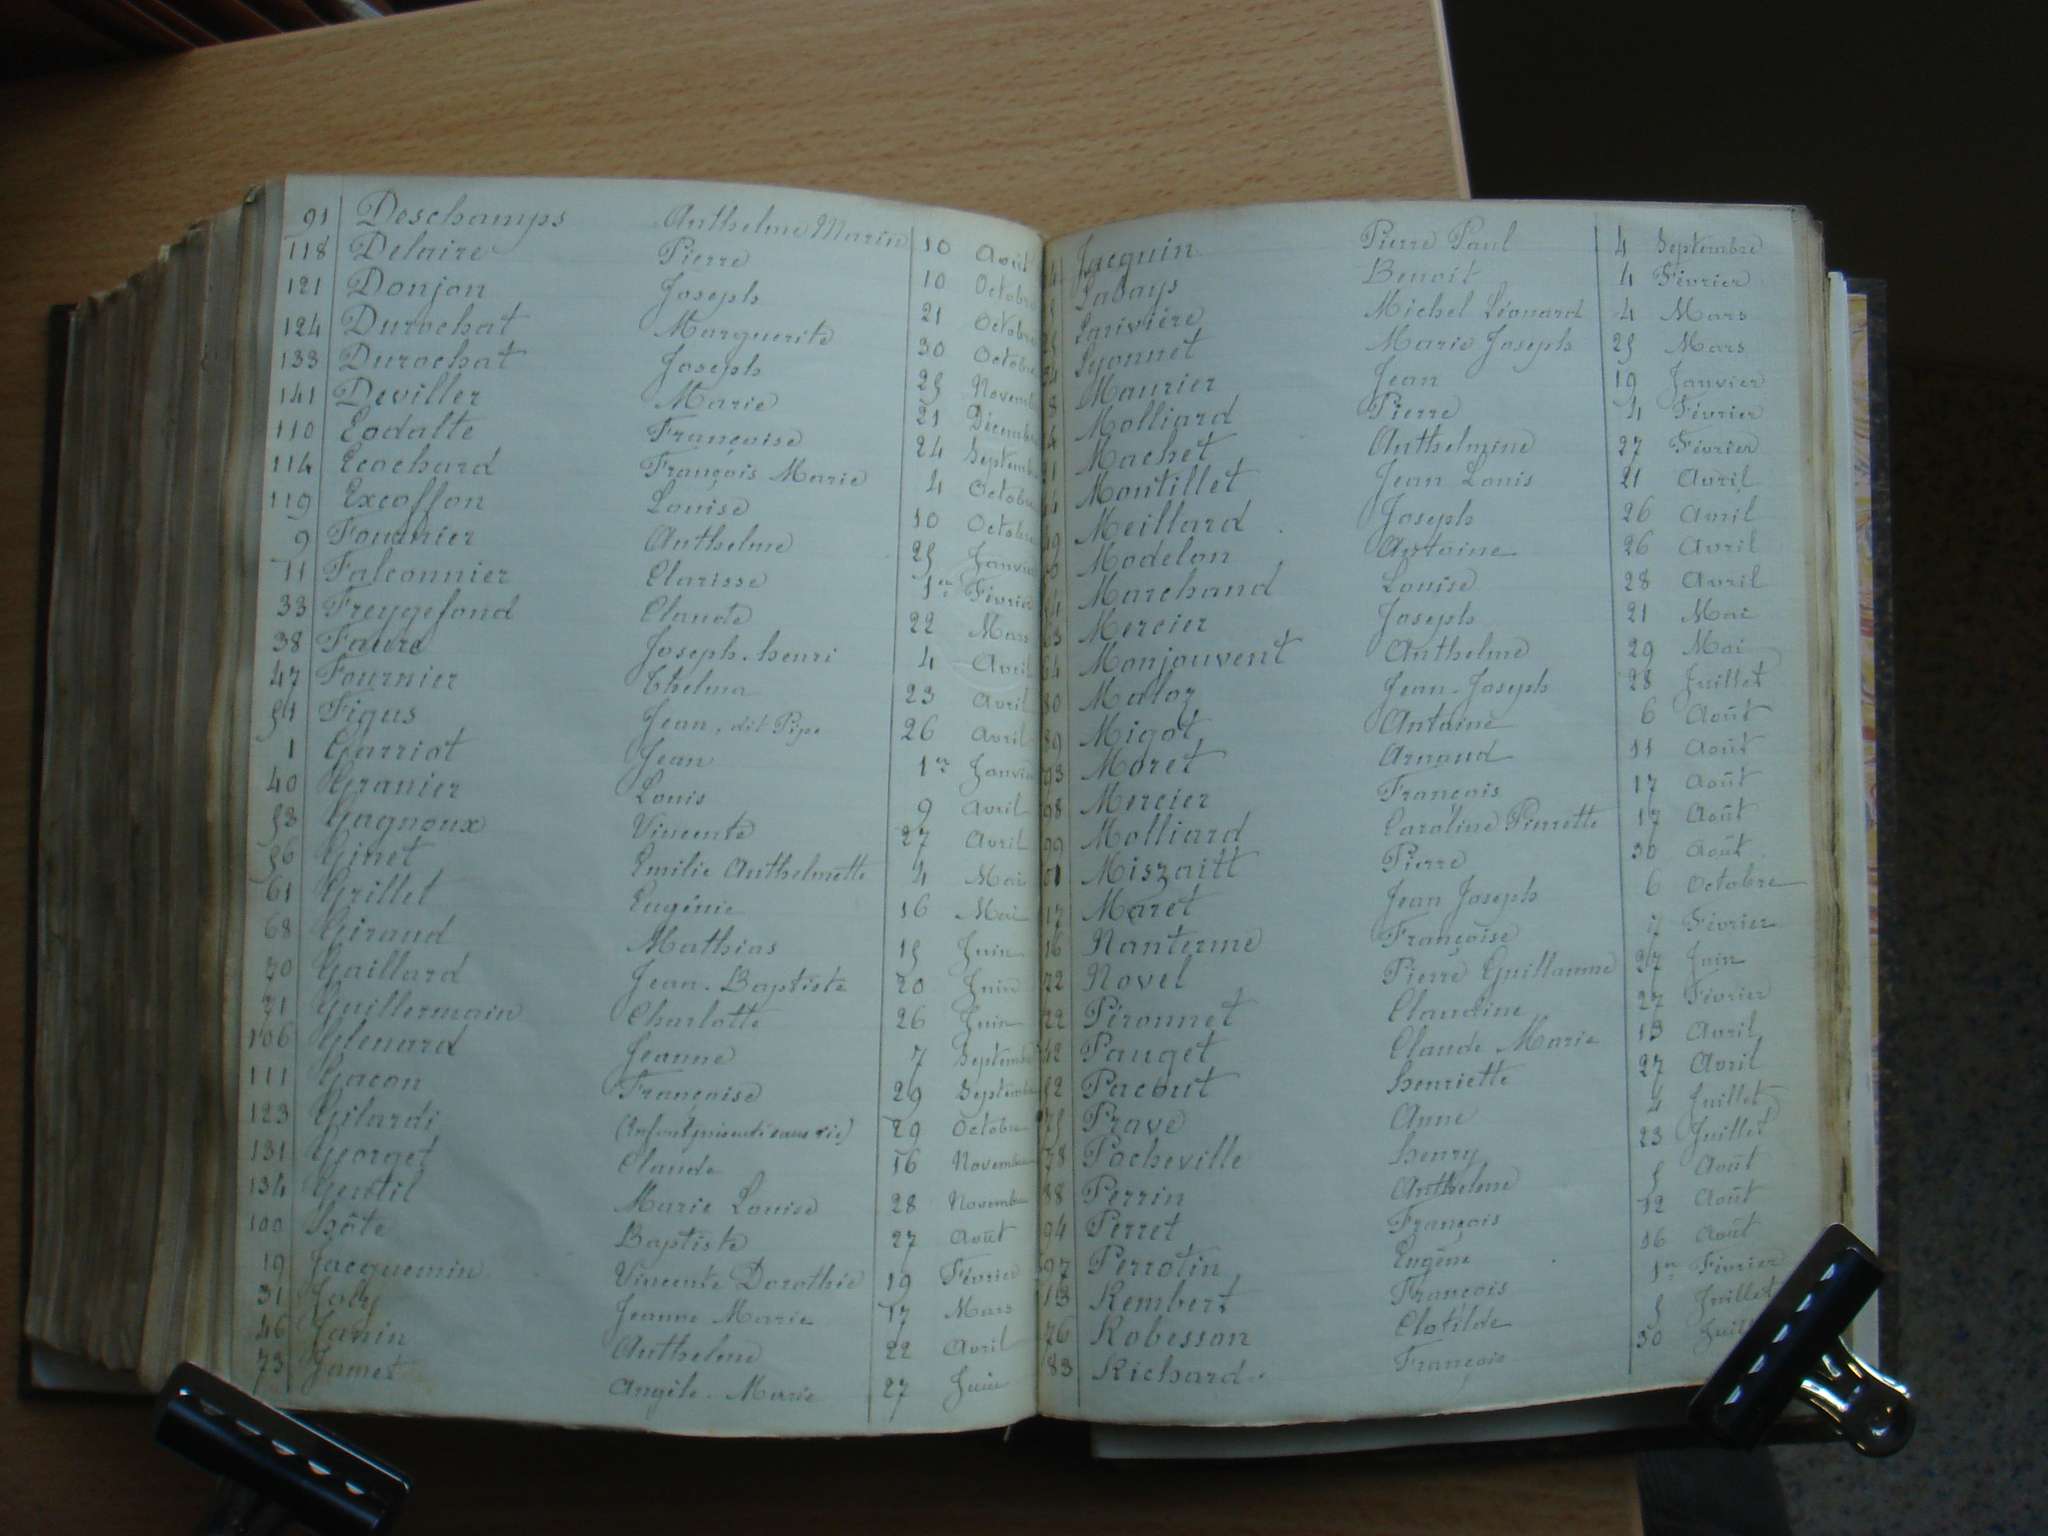 91 Deschamps Anthelme Marin 10 Août
118 Delaire Pierre 10 Octobre
121 Donjon Joseph 21 Octobre
124 Durochat Marguerite 30 Octobre
133 Durochat Joseph 25 Novemb
141 Deviller Marie 21 Décemb
110 Eodalte Françoise 24 Septemb
114 Ecochard François Marie 4 Octobre
119 Excoffon Louise 10 Octobre
9 Fournier Anthelme 25 Janvier
11 Falconnier Clarisse 1er Février
33 Freygefond Claude 22 Mars
38 Faure Joseph. henri 4 Avril
47 Fournier Thelma 23 Avril
51 Figus Jean, dit Pipe 26 Avril
1 Garriot Jean 1er Janvier
40 Granier Louis 9 Avril
53 Gagnoux Vincente 27 Avril
56 Ginet Emilie Anthelmette 4 Mai
61 Grillet Eugénie 16 Mai
68 Giraud Mathias 15 Juin
70 Gaillard Jean. Baptiste 20 Juin
71 Guillermain Charlotte 26 Juin
106 Glenard Jeanne 7 Septemb
111 Gacon Françoise 29 Septembre
123 Gilardi (Enfant présenté sans vie) 29 Octobre
131 Georget Claude 16 Novembre
134 Gentil Marie Louise 28 Novemb
100 Hôte Baptiste 27 Août
19 Jacquemin Vincente Dorothée 19 Février
31 Joly Jeanne Marie 17 Mars
46 Janin Anthelme 22 Avril
73 James Angèle. Marie 27 Juin
Jacquin Pierre Paul 4 Septembre
Labays Benoit 4 Février
Larivière Michel Léonard 4 Mars
Lyonnet Marie Joseph 25 Mars
Maurier Jean 19 Janvier
Molliard Pierre 4 Février
Machet Anthelmine 27 Février
Montillet Jean Louis 21 Avril
Meillard Joseph 26 Avril
Modelon Antoine 26 Avril
Marchand Louise 28 Avril
63 Mercier Joseph 21 Mai
64 Monjouvent Anthelme 29 Mai
80 Maloz Jean-Joseph 28 Juillet
89 Migot Antoine 6 Août
93 Moret Arnaud 11 Août
98 Mercier François 17 Août
99 Molliard Caroline Pierrette 17 Août
01 Miszaitt Pierre 30 Août
17 Maret Jean Joseph 6 Octobre
16 Nanterme Françoise 7 Février
72 Novel Pierre Guillaume 27 Juin
22 Pironnet Claudine 27 Février
42 Pauget Claude Marie 13 Avril
52 Pacout Henriette 27 Avril
75 Prave Anne 4 Juillet
78 Pacheville Henry 23 Juillet
88 Perrin Anthelme 5 Août
94 Perret François 12 Août
97 Perrotin Eugène 16 Août
13 Rembert François 1er Février
76 Robesson Clotilde 5 Juillet
83 Richard François 30 Juil